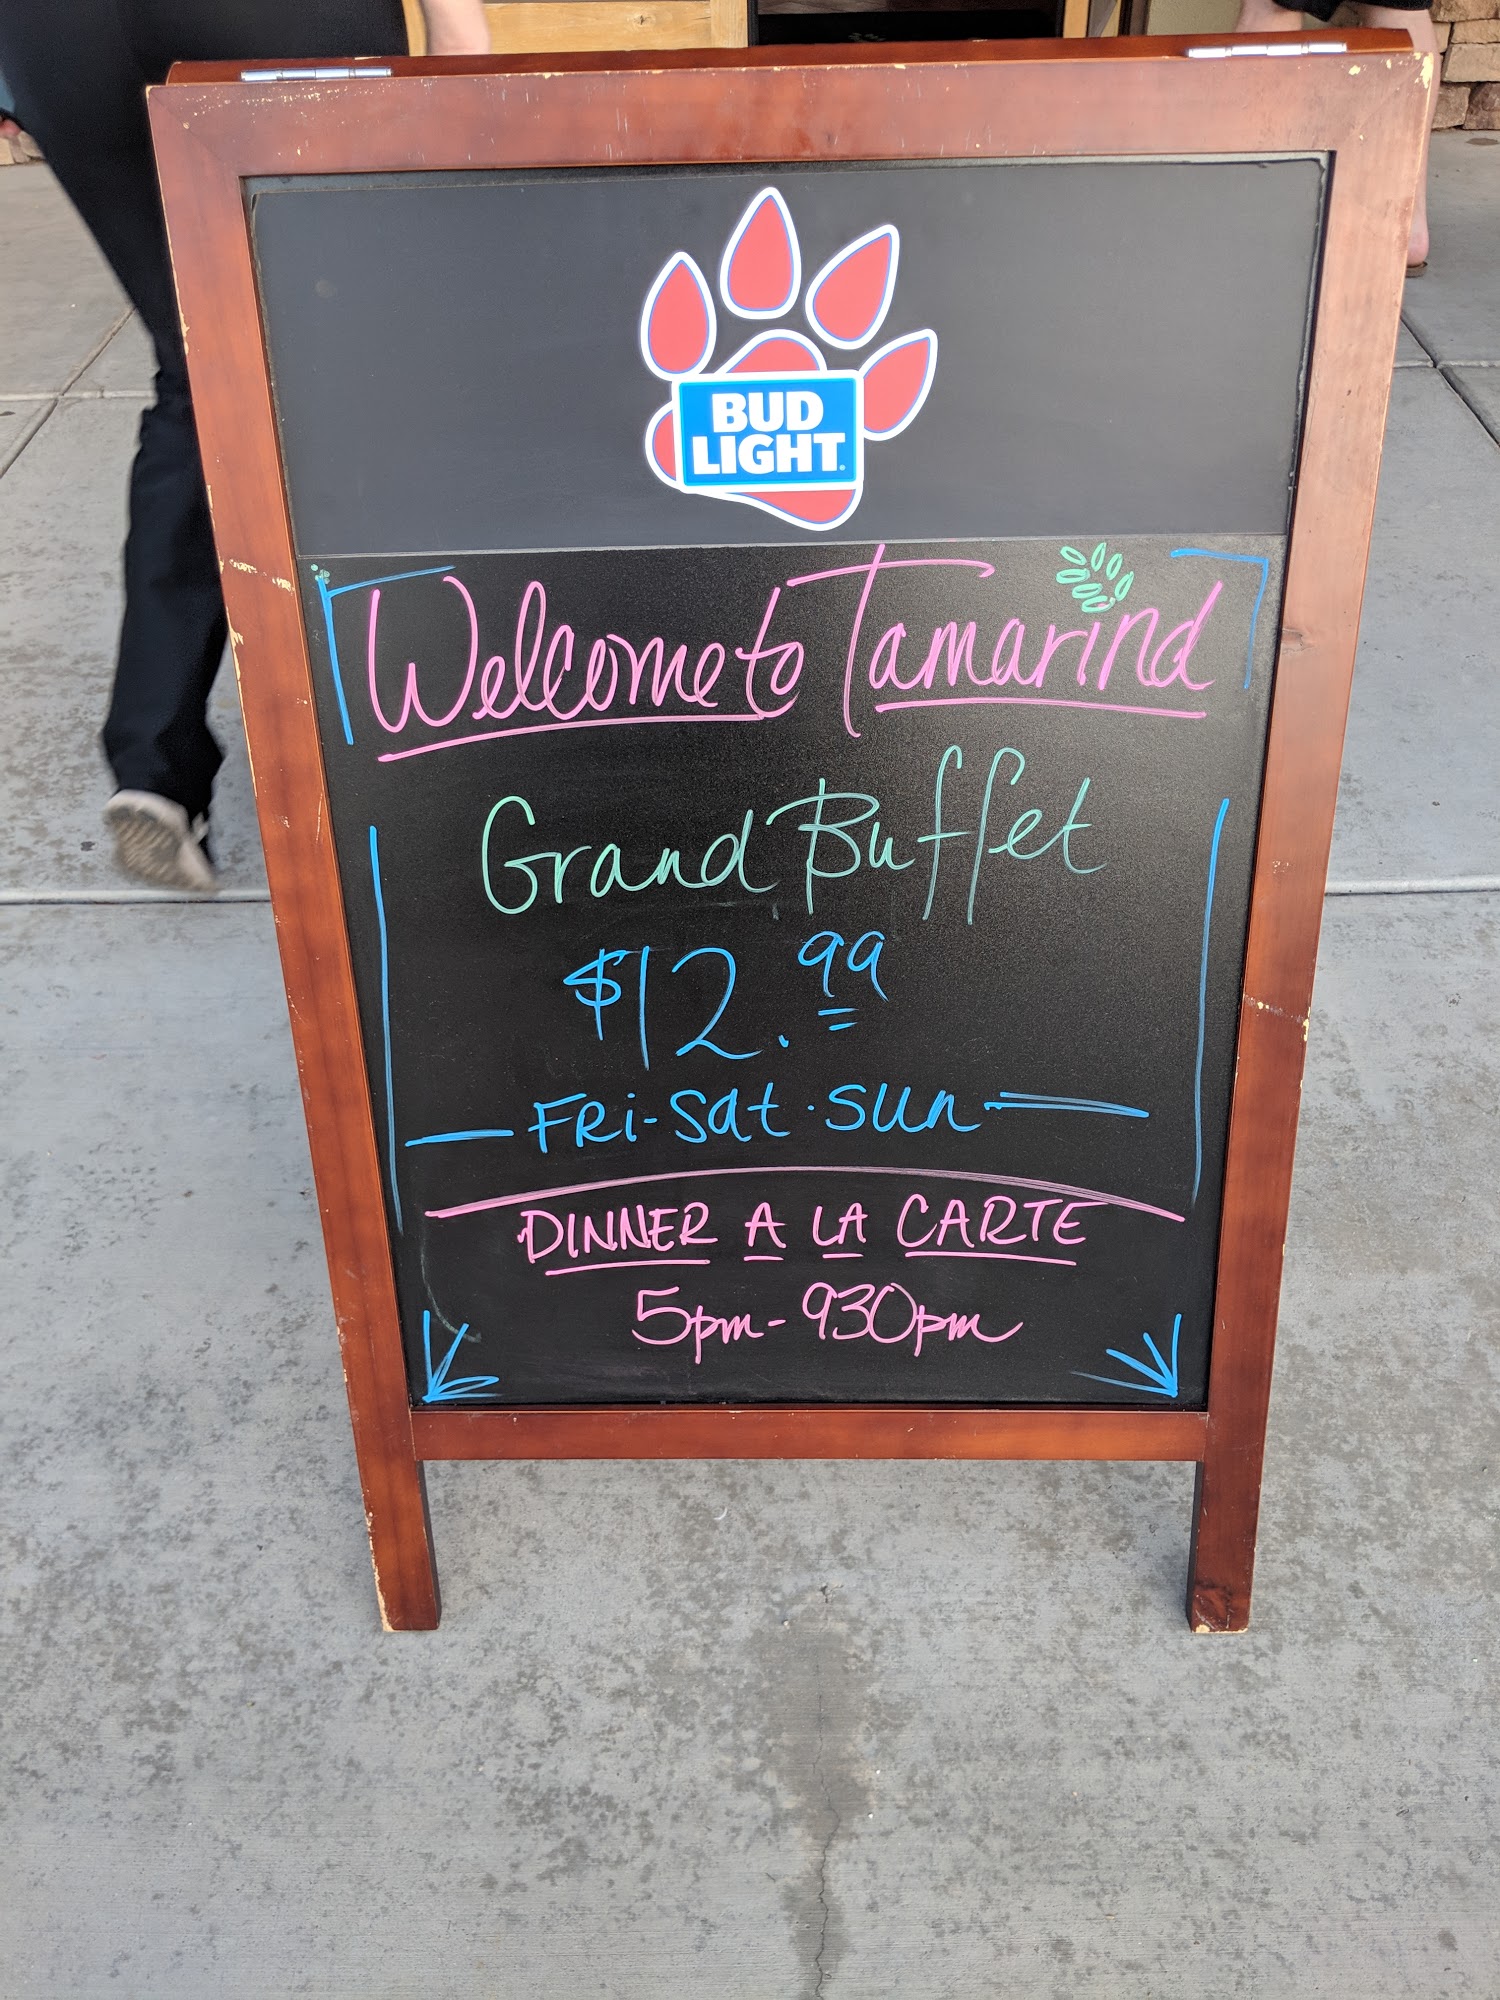 BUD
LIGHT
Welcome to Tamarind
Grand Buffet
$12.99
Fri-Sat·Sun
DINNER A LA CARTE
5pm-930pm